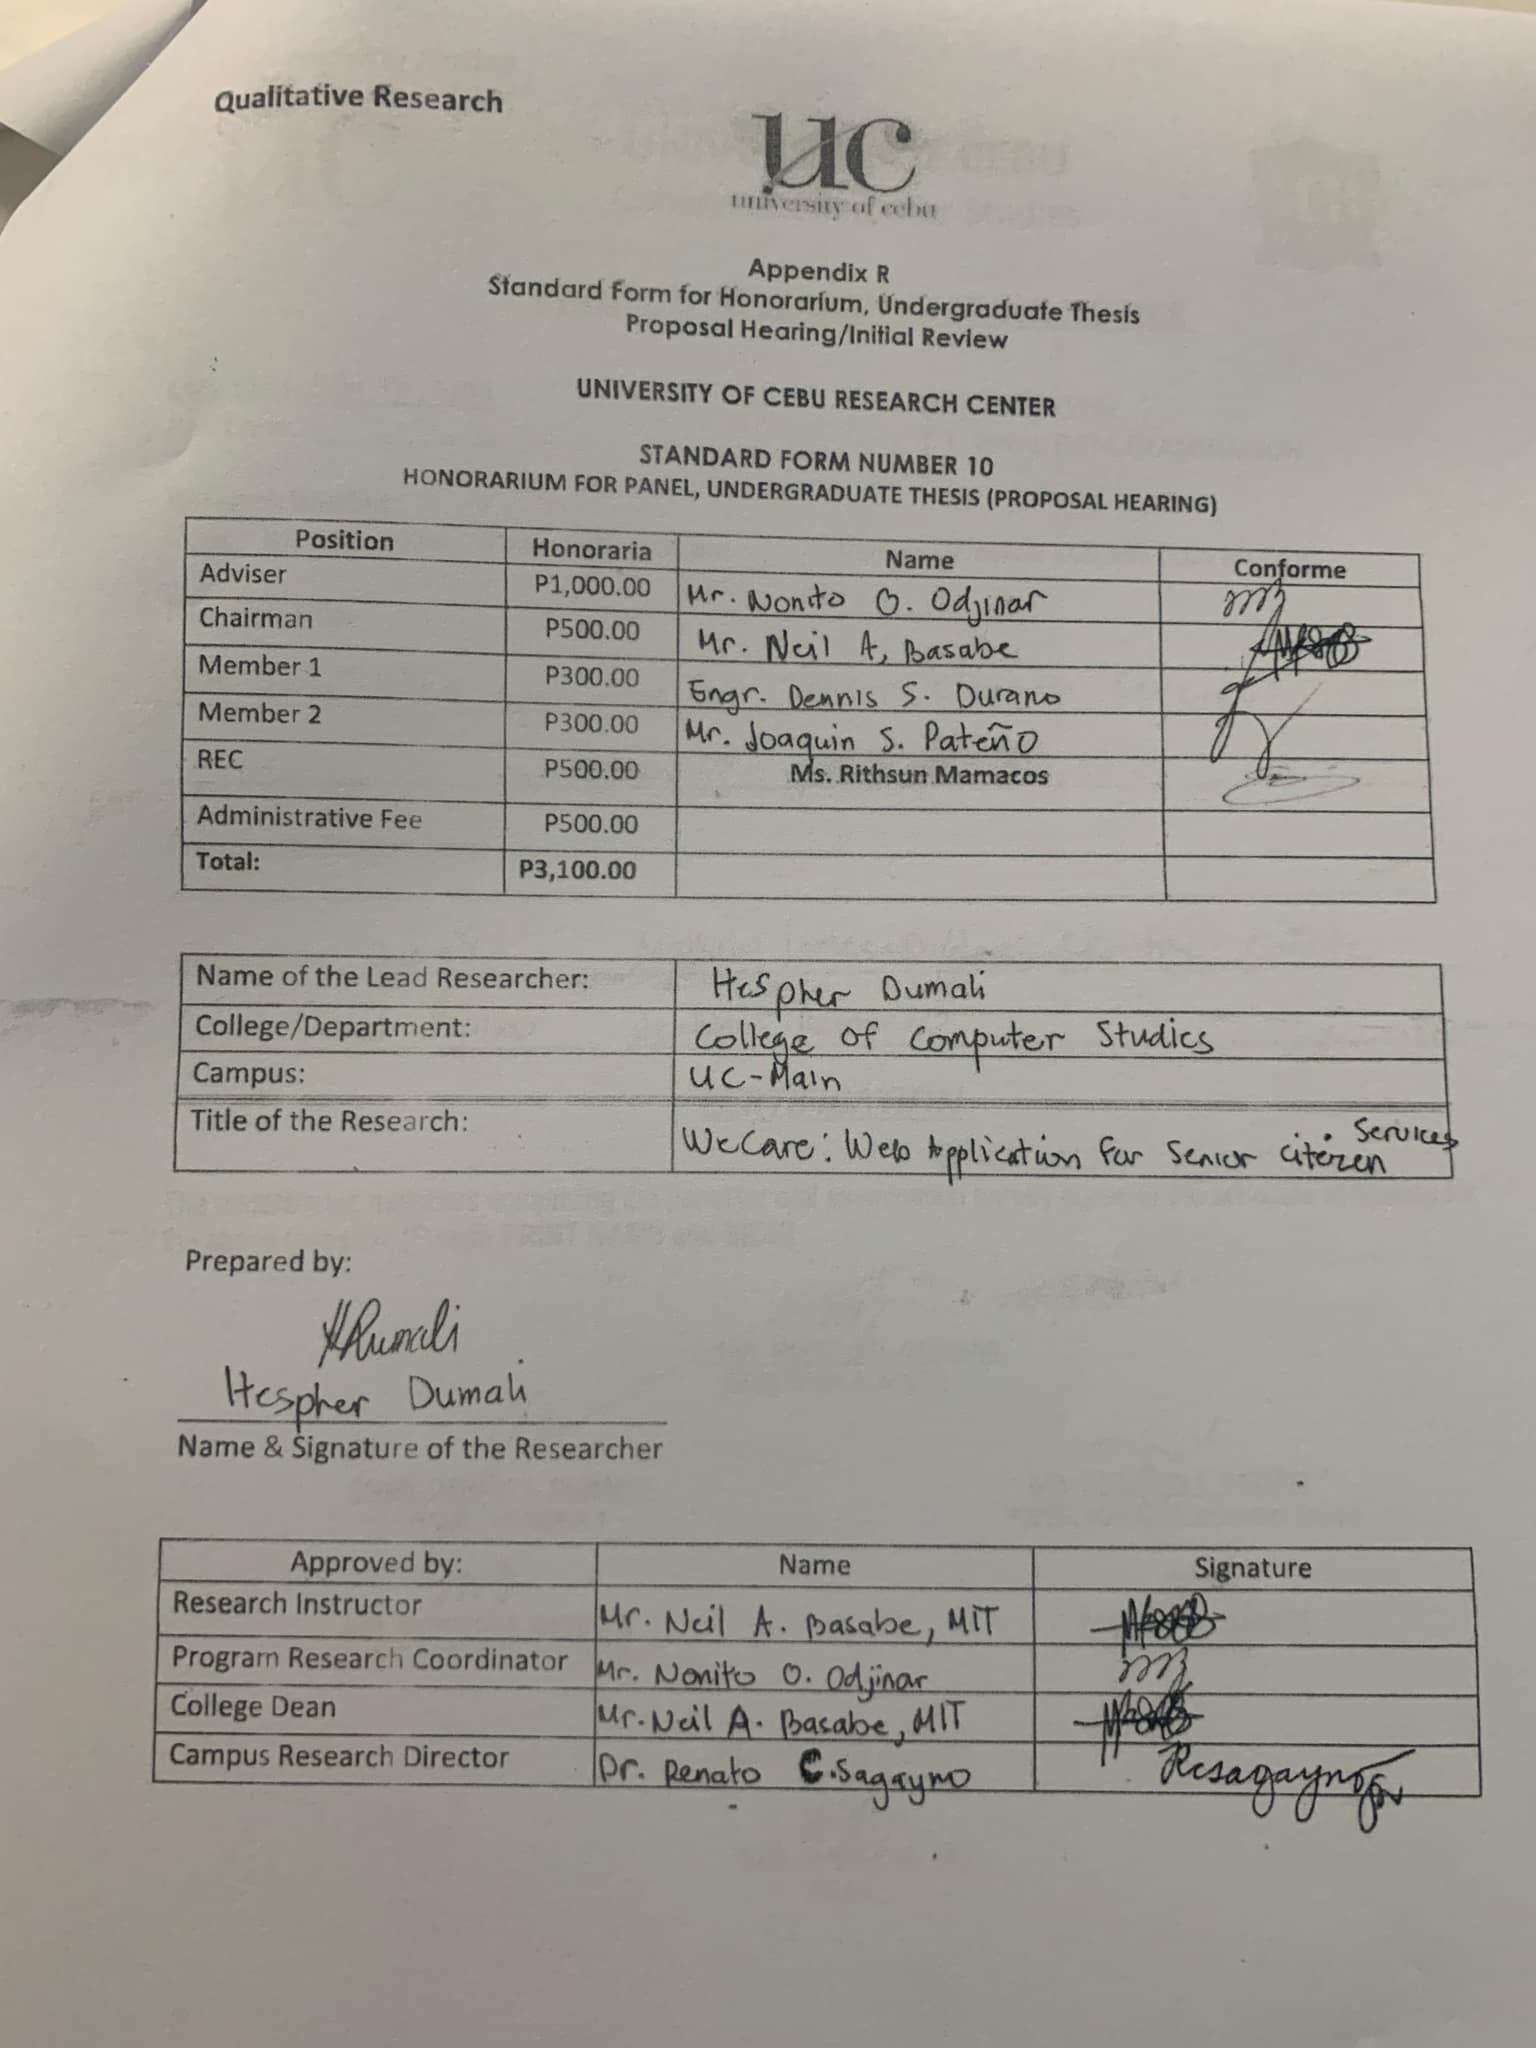 Qualitative Research
uc
university of cebu
Appendix R
Standard Form for Honorarium, Undergraduate Thesis
Proposal Hearing/Initial Review
UNIVERSITY OF CEBU RESEARCH CENTER
STANDARD FORM NUMBER 10
HONORARIUM FOR PANEL, UNDERGRADUATE THESIS (PROPOSAL HEARING)
Position Honoraria Name Conforme
Adviser P1,000.00 Mr. Nonito O. Odjinar
Chairman P500.00 Mr. Neil A. Basabe
Member 1 P300.00 Engr. Dennis S. Durano
Member 2 P300.00 Mr. Joaquin S. Pateño
REC P500.00 Ms. Rithsun Mamacos
Administrative Fee P500.00
Total: P3,100.00
Name of the Lead Researcher: Hespher Dumali
College/Department: College of Computer Studies
Campus: UC-Main
Title of the Research: WeCare: Web Application for Senior citizen Services
Prepared by:
HDumali
Hespher Dumali
Name & Signature of the Researcher
Approved by: Name Signature
Research Instructor Mr. Neil A. Basabe, MIT
Program Research Coordinator Mr. Nonito O. Odjinar
College Dean Mr. Neil A. Basabe, MIT
Campus Research Director Dr. Renato C. Sagayno Rcsagayno